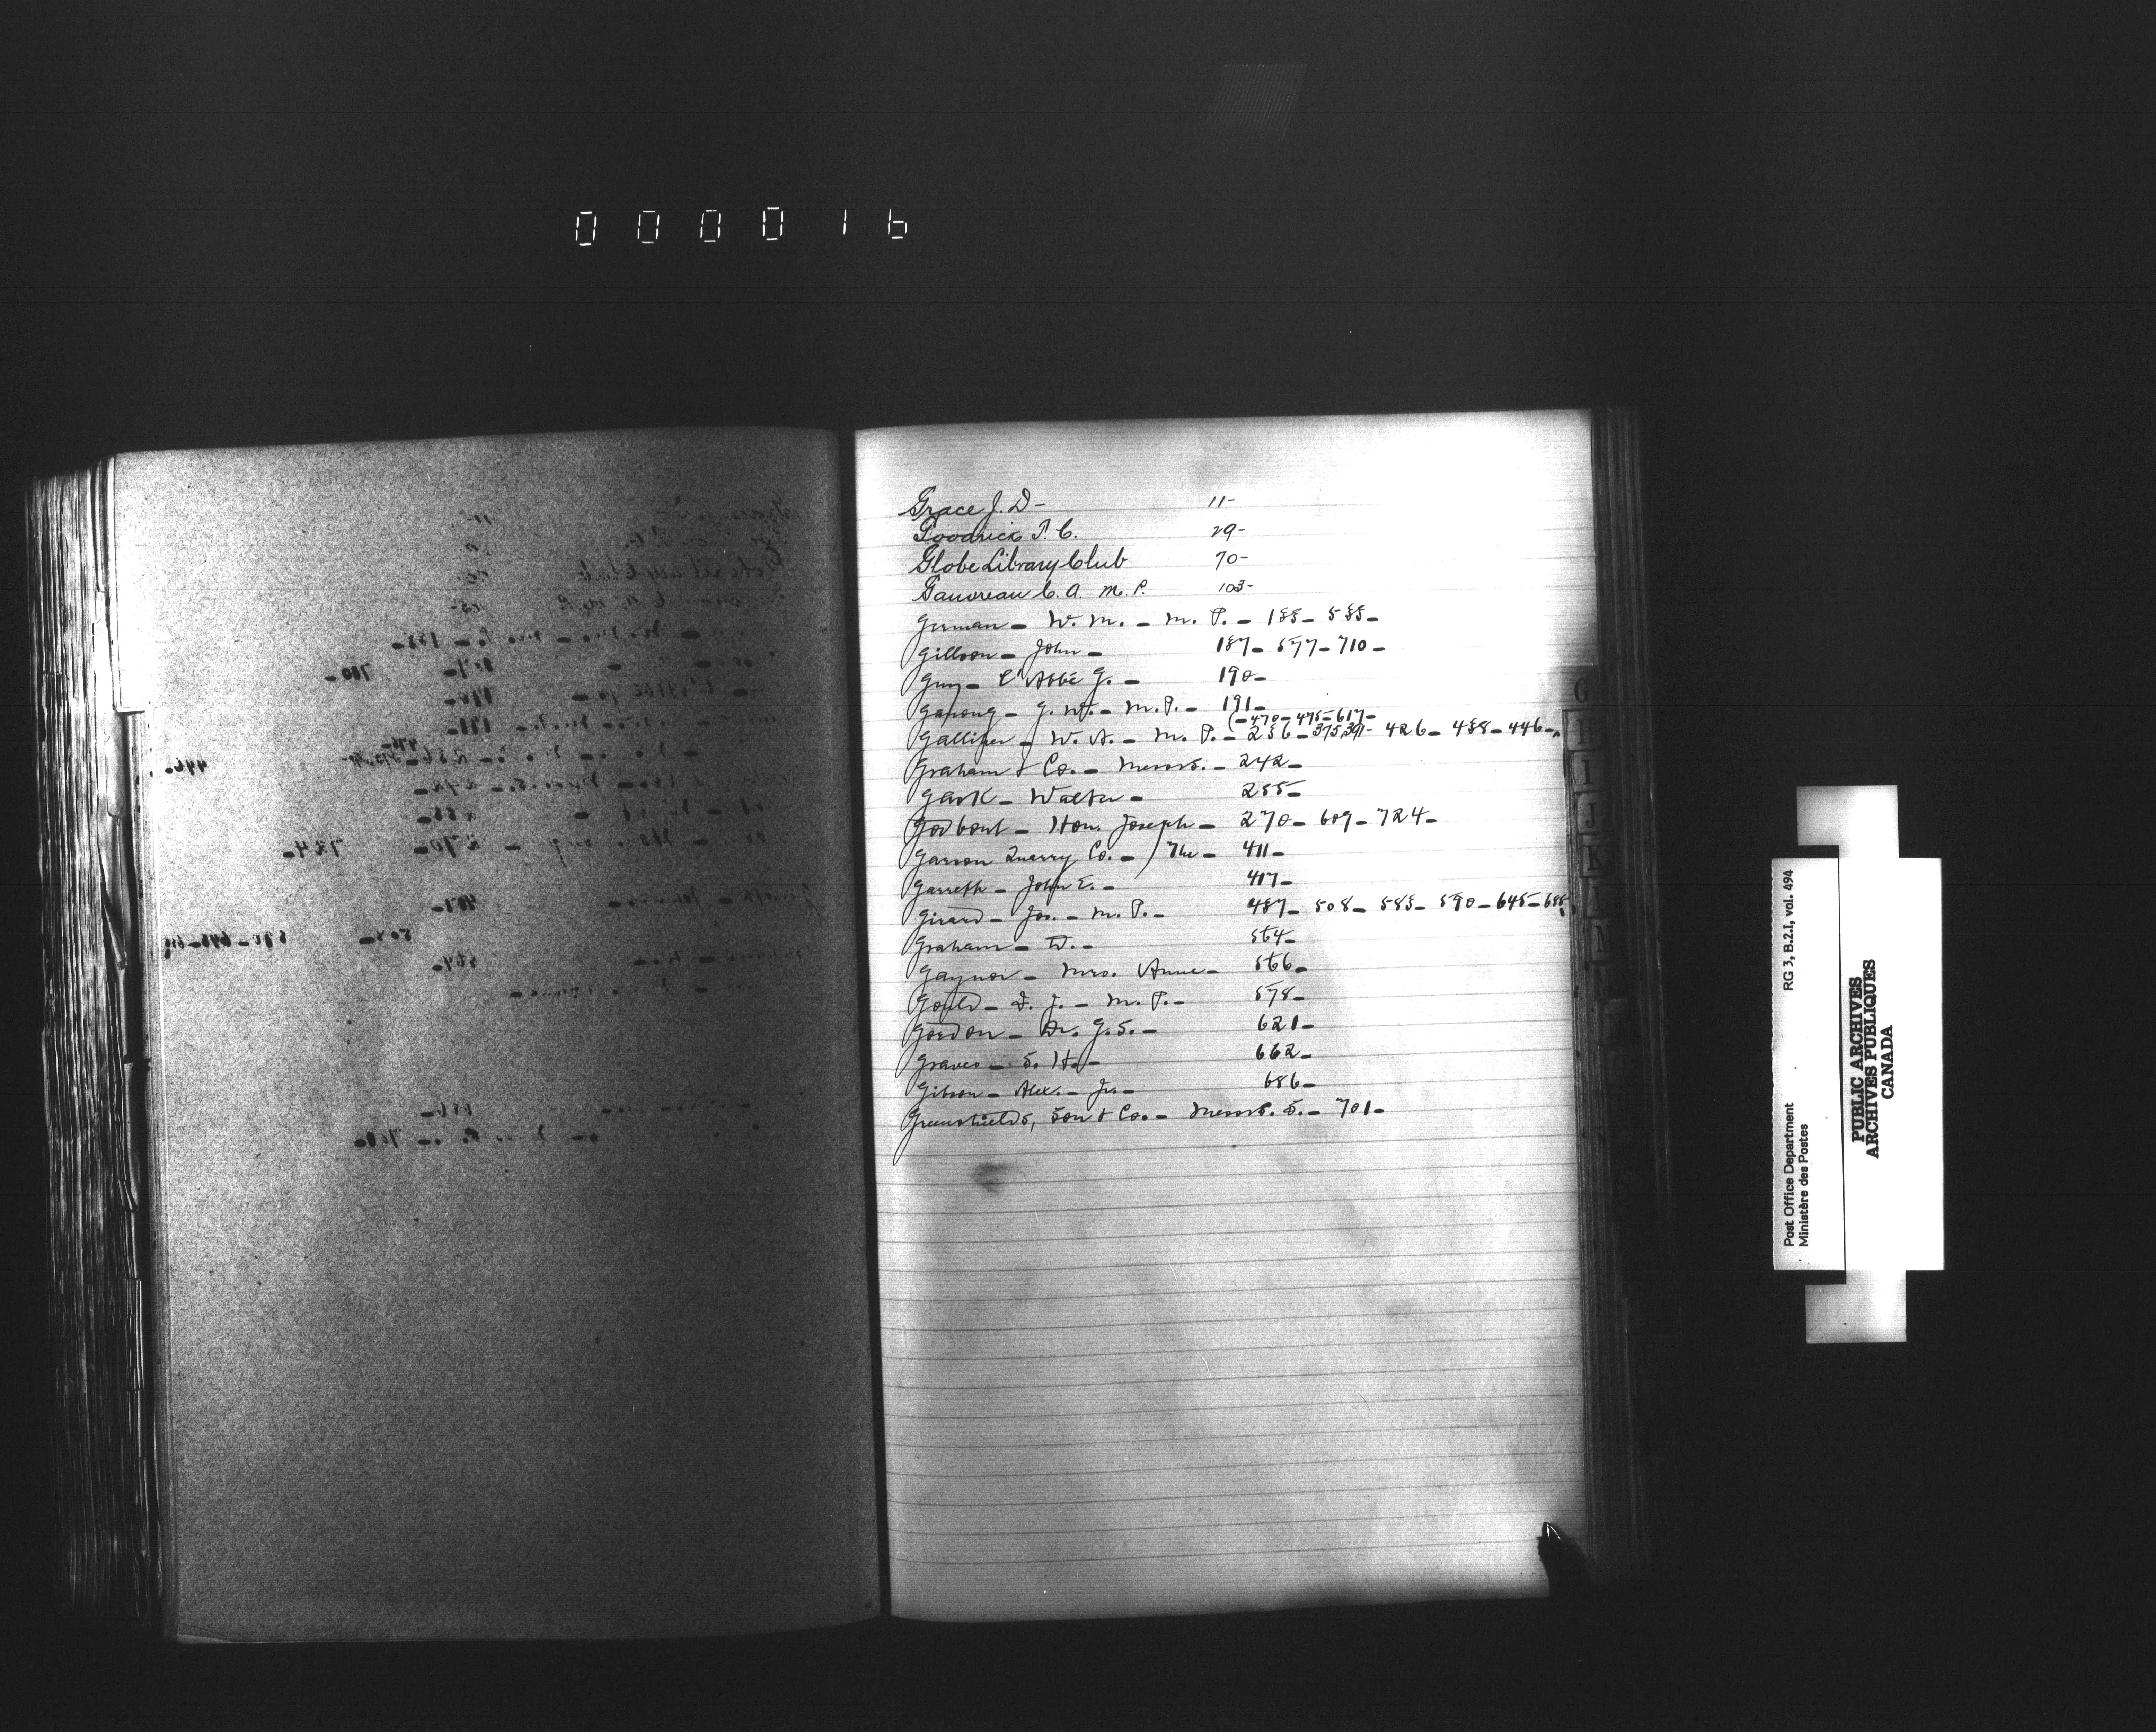 000016
Grace J. D - 11-
Goodrick T. C. 29-
Globe Library Club 70-
Gauvreau C. A. M. P. 103-
German - W. M. - M. P. - 185 - 585 -
Gibson - John - 187 - 577 - 710 -
Guy - L'Abbé G. - 190 -
Ganong - G. W. - M. P. - 191 -
(- 470 - 475 - 617 -
Galliher - W. A. - M. P. - 236 - 375, 391 - 426 - 438 - 446 -
Graham & Co. - Messrs. - 242 -
Walter - 255 -
Godbout - Hon. Joseph - 270 - 609 - 724 -
Garson Quarry Co. - / The - 411 -
Garreth - John E. - 417 -
Girard - Jos. - M. P. - 487 - 508 - 585 - 590 - 645 -
Graham - W. - 564 -
Gaynor - Mrs. Anne - 566 -
Gould - I. J. - M. P. - 578 -
Gordon - Dr. G. S. - 621 -
Graves - S. H. - 662 -
Gibson - Alex. - Jr. - 686 -
Greenshields, Son & Co. - Messrs. S. - 701 -
G
H
I
J
K
L
RG 3, B.2.I, vol. 494
Post Office Department
Ministère des Postes
PUBLIC ARCHIVES
ARCHIVES PUBLIQUES
CANADA